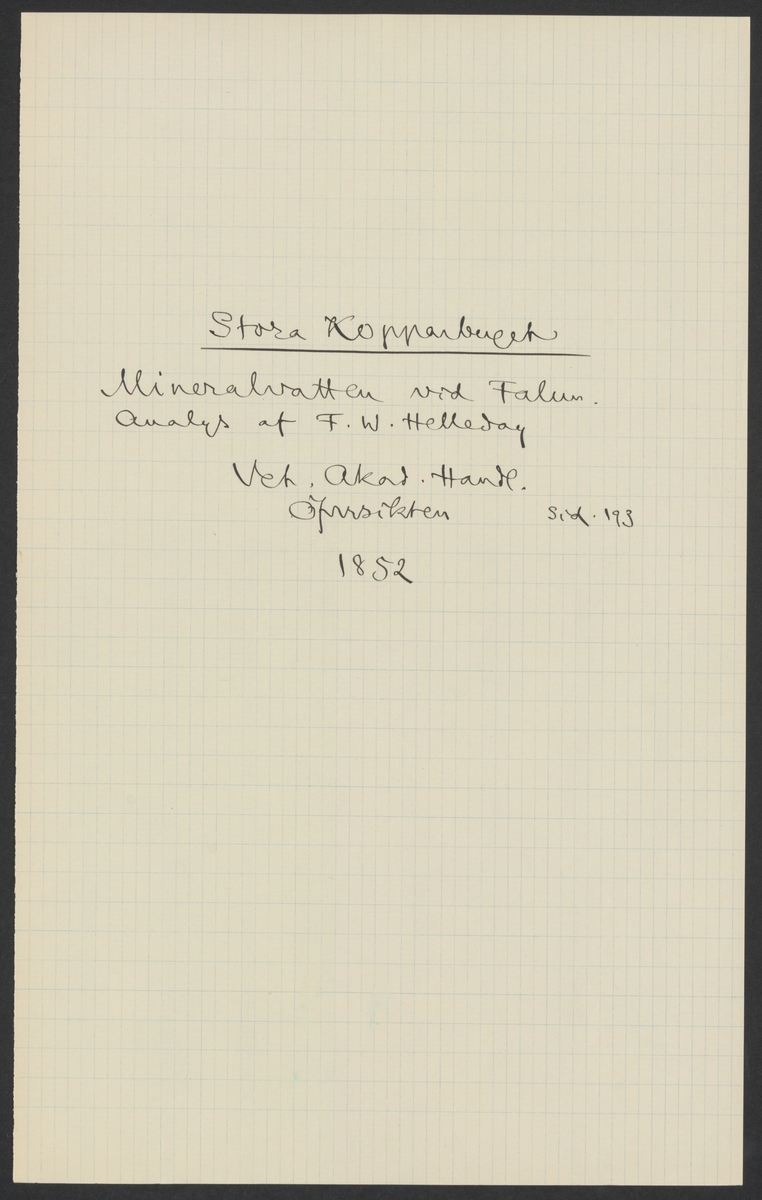 Stora Kopparberget
Mineralvatten vid Falun.
Analys af F. W. Helleday
Vet. Akad. Handl.
Öfversikten Sid. 193
1852